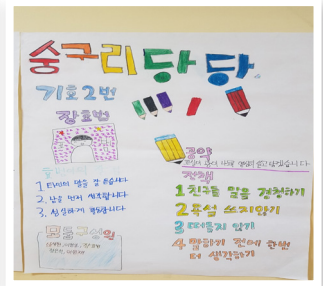 숭구리당당
기호2번
장호범
1. 타인의 말을 잘 듣습니다
2. 남을 먼저 생각합니다
3. 성실하게 행동합니다
모둠구성원
공약
정책
1 친구들 말을 경청하기
2 욕설 쓰지않기
3 떠들지 않기
4 말하기 전에 한번
더 생각하기